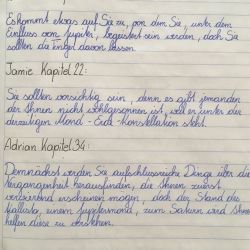 Es kommt etwas auf Sie zu, von dem Sie, unter dem
Einfluss vom Jupiter, begeistert sein werden, doch Sie
sollten die Finger davon lassen.
Jamie Kapitel 22:
Sie sollten vorsichtig sein, denn es gibt jemanden
der Ihnen nicht wohlgesonnen ist, weil er unter der
derzeitigen Mond-Erde-Konstellation steht.
Adrian Kapitel 34:
Demnächst werden Sie aufschlussreiche Dinge über die
Vergangenheit herausfinden, die Ihnen zuerst
verwirrend erscheinen mögen, doch der Stand des
Kallisto, einem Jupitermond, zum Saturn wird Ihnen
helfen diese zu verstehen.